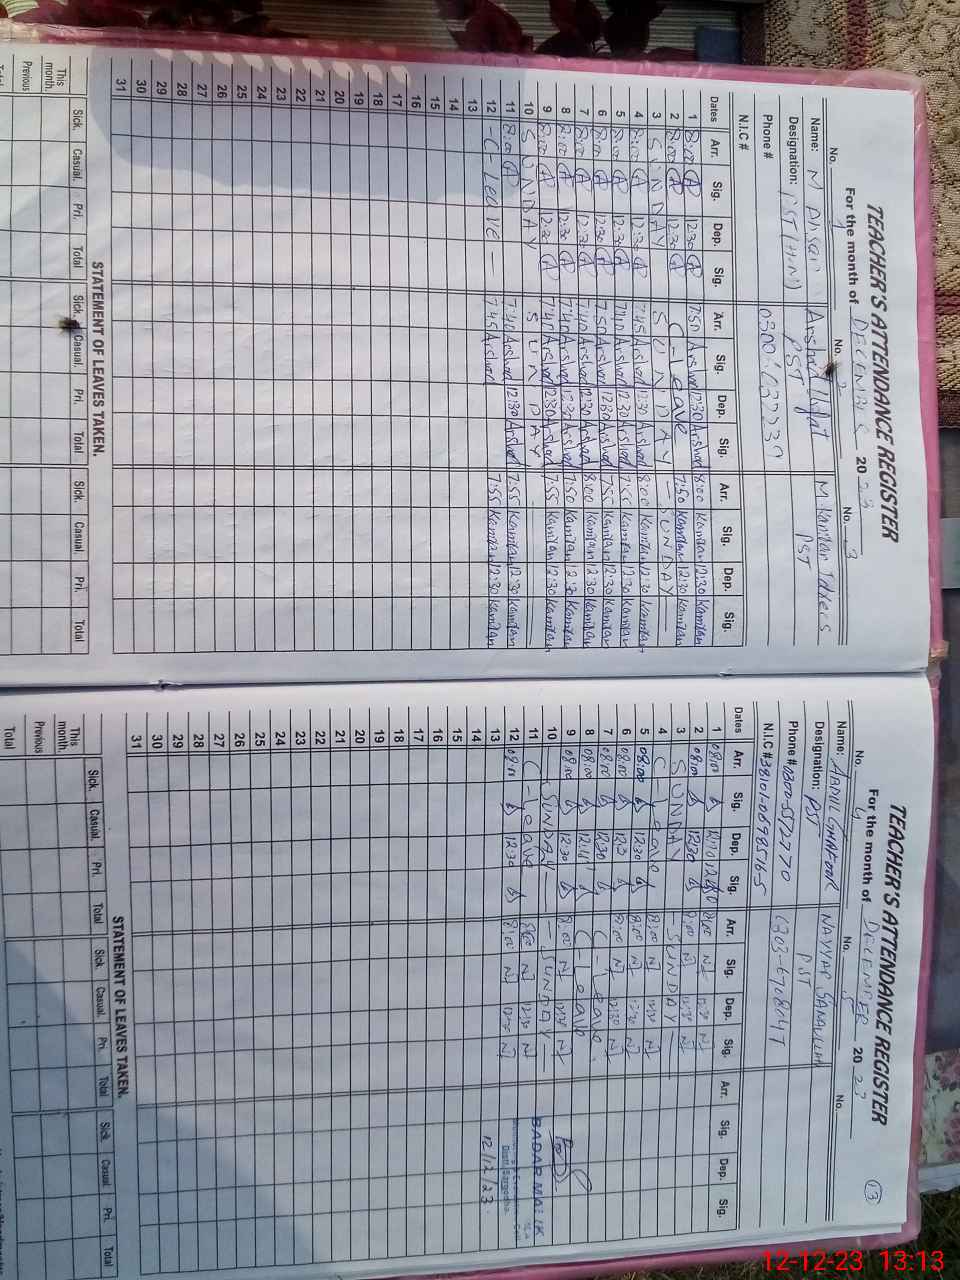 TEACHER'S ATTENDANCE REGISTER
For the month of DECEMBER 2023
No. 1 No. 2 No. 3
Name: M Arshad Ulfat M. Kamran Idrees
Designation: PST (H.M) PST PST
Phone #
N.I.C #
Dates Arr. Sig. Dep. Sig. Arr. Sig. Dep. Sig. Arr. Sig. Dep. Sig.
1 8:00 A 12:30 A 7:50 Arshad 12:30 Arshad 8:00 Kamran 12:30 Kamran
2 8:00 A 12:30 A C-Leave 7:50 Kamran 12:30 Kamran
3 SUNDAY SUNDAY — SUNDAY —
4 8:00 A 12:30 A 7:45 Arshad 12:30 Arshad 8:00 Kamran 12:30 Kamran
5 8:00 A 12:30 A 7:40 Arshad 12:30 Arshad 7:55 Kamran 12:30 Kamran
6 8:00 A 12:30 A 7:50 Arshad 12:30 Arshad 7:50 Kamran 12:30 Kamran
7 8:00 A 12:30 A 7:40 Arshad 12:30 Arshad 8:00 Kamran 12:30 Kamran
8 8:00 A 12:30 A 7:40 Arshad 12:30 Arshad 7:50 Kamran 12:30 Kamran
9 8:00 A 12:30 A 7:40 Arshad 12:30 Arshad 7:55 Kamran 12:30 Kamran
10 SUNDAY SUNDAY
11 8:00 A 7:40 Arshad 12:30 Arshad 7:55 Kamran 12:30 Kamran
12 -C- Leave — 7:45 Arshad 7:55 Kamran 12:30 Kamran
13
14
15
16
17
18
19
20
21
22
23
24
25
26
27
28
29
30
31
STATEMENT OF LEAVES TAKEN.
Sick. Casual. Pri. Total Sick. Casual. Pri. Total Sick. Casual. Pri. Total
This month.
Previous
Total
TEACHER'S ATTENDANCE REGISTER
13
For the month of DECEMBER 2023
No. 4 No. 5 No.
Name: ABDUL GHAFOOR NAYYAR SANAULLAH
Designation: PST PST
Phone # 0300-
N.I.C # 38101-0698516-5
Dates Arr. Sig. Dep. Sig. Arr. Sig. Dep. Sig. Arr. Sig. Dep. Sig.
1 08:00 8:00 N 12:30 N
2 08:00 12:30 8:00 N 12:30 N
3 SUNDAY — SUNDAY —
4 C-Leave 8:00 N 12:30 N
5 08:00 12:30 8:00 N 12:30 N
6 08:00 8:00 N 12:30 N
7 08:00 12:30 C-Leave
8 08:00 C-Leave
9 08:00 12:30 8:00 N 12:30 N
10 SUNDAY — — SUNDAY —
11 C-Leave 8:00 N 12:30 N
12 08:00 12:30 8:00 N 12:30 N
13
14
15
16
17
18
19
20
21
22
23
24
25
26
27
28
29
30
31
BADAR
Distt. Sargodha.
12/12/23.
STATEMENT OF LEAVES TAKEN.
Sick. Casual. Pri. Total Sick. Casual. Pri. Total Sick. Casual Pri. Total
This month.
Previous
Total
12-12-23 13:13